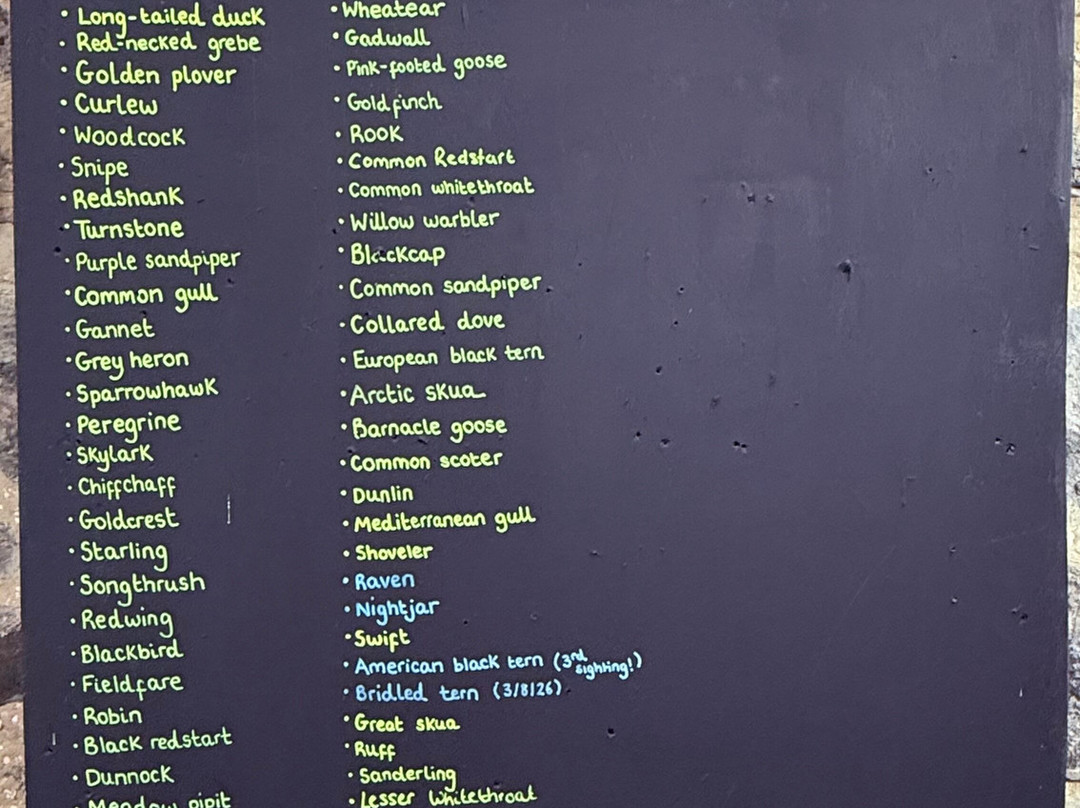 • Long-tailed duck
• Red-necked grebe
• Golden plover
• Curlew
• Woodcock
• Snipe
• Redshank
• Turnstone
• Purple sandpiper
• Common gull
• Gannet
• Grey heron
• Sparrowhawk
• Peregrine
• Skylark
• Chiffchaff
• Goldcrest
• Starling
• Songthrush
• Redwing
• Blackbird
• Fieldfare
• Robin
• Black redstart
• Dunnock
• Meadow pipit
• Wheatear
• Gadwall
• Pink-footed goose
• Goldfinch
• Rook
• Common Redstart
• Common whitethroat
• Willow warbler
• Blackcap
• Common sandpiper
• Collared dove
• European black tern
• Arctic skua
• Barnacle goose
• Common scoter
• Dunlin
• Mediterranean gull
• Shoveler
• Raven
• Nightjar
• Swift
• American black tern (3rd sighting!)
• Bridled tern (3/8/26)
• Great skua
• Ruff
• Sanderling
• Lesser Whitethroat